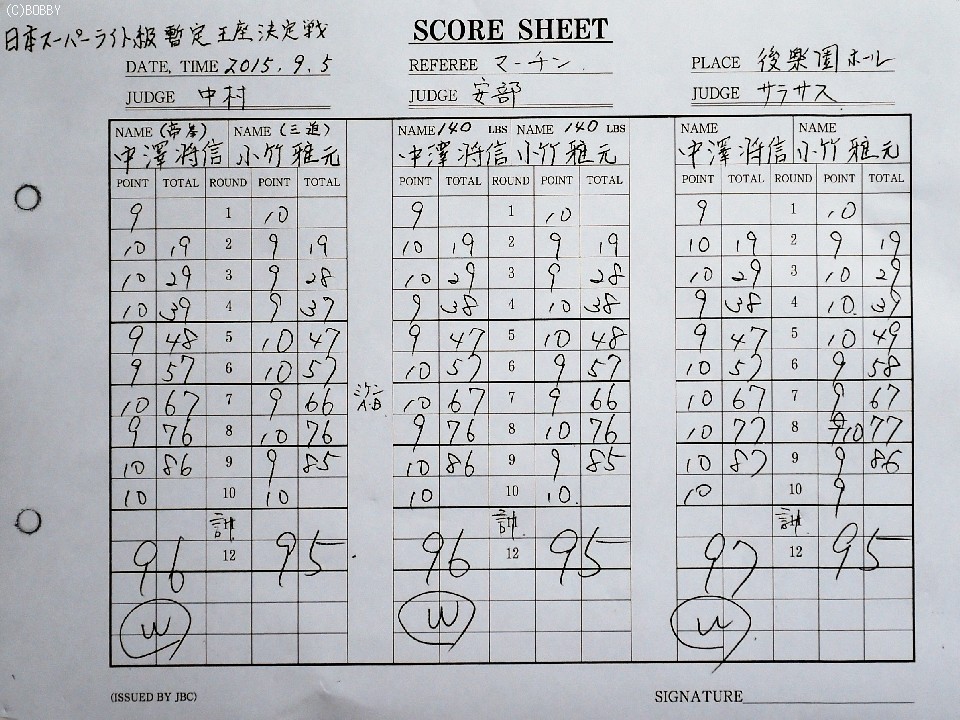 (C)BOBBY
日本スーパーライト級暫定王座決定戦
SCORE SHEET
DATE, TIME 2015.9.5 REFEREE マーチン PLACE 後楽園ホール
JUDGE 中村 JUDGE 安部 JUDGE サラサス
NAME (帝拳) NAME (三迫) NAME 140 LBS NAME 140 LBS NAME NAME
中澤将信 小竹雅元 中澤将信 小竹雅元 中澤将信 小竹雅元
POINT TOTAL ROUND POINT TOTAL POINT TOTAL ROUND POINT TOTAL POINT TOTAL ROUND POINT TOTAL
9 1 10 9 1 10 9 1 10
10 19 2 9 19 10 19 2 9 19 10 19 2 9 19
10 29 3 9 28 10 29 3 9 28 10 29 3 10 29
10 39 4 9 37 9 38 4 10 38 9 38 4 10 39
9 48 5 10 47 9 47 5 10 48 9 47 5 10 49
9 57 6 10 57 10 57 6 9 57 10 57 6 9 58
10 67 7 9 66 ミケン 10 67 7 9 66 10 67 7 9 67
A.B
9 76 8 10 76 9 76 8 10 76 10 77 8 10 77
10 86 9 9 85 10 86 9 9 85 10 87 9 9 86
10 10 10 10 10 10 10 10 9
計 計 計
96 12 95 96 12 95 97 12 95
W W W
(ISSUED BY JBC) SIGNATURE